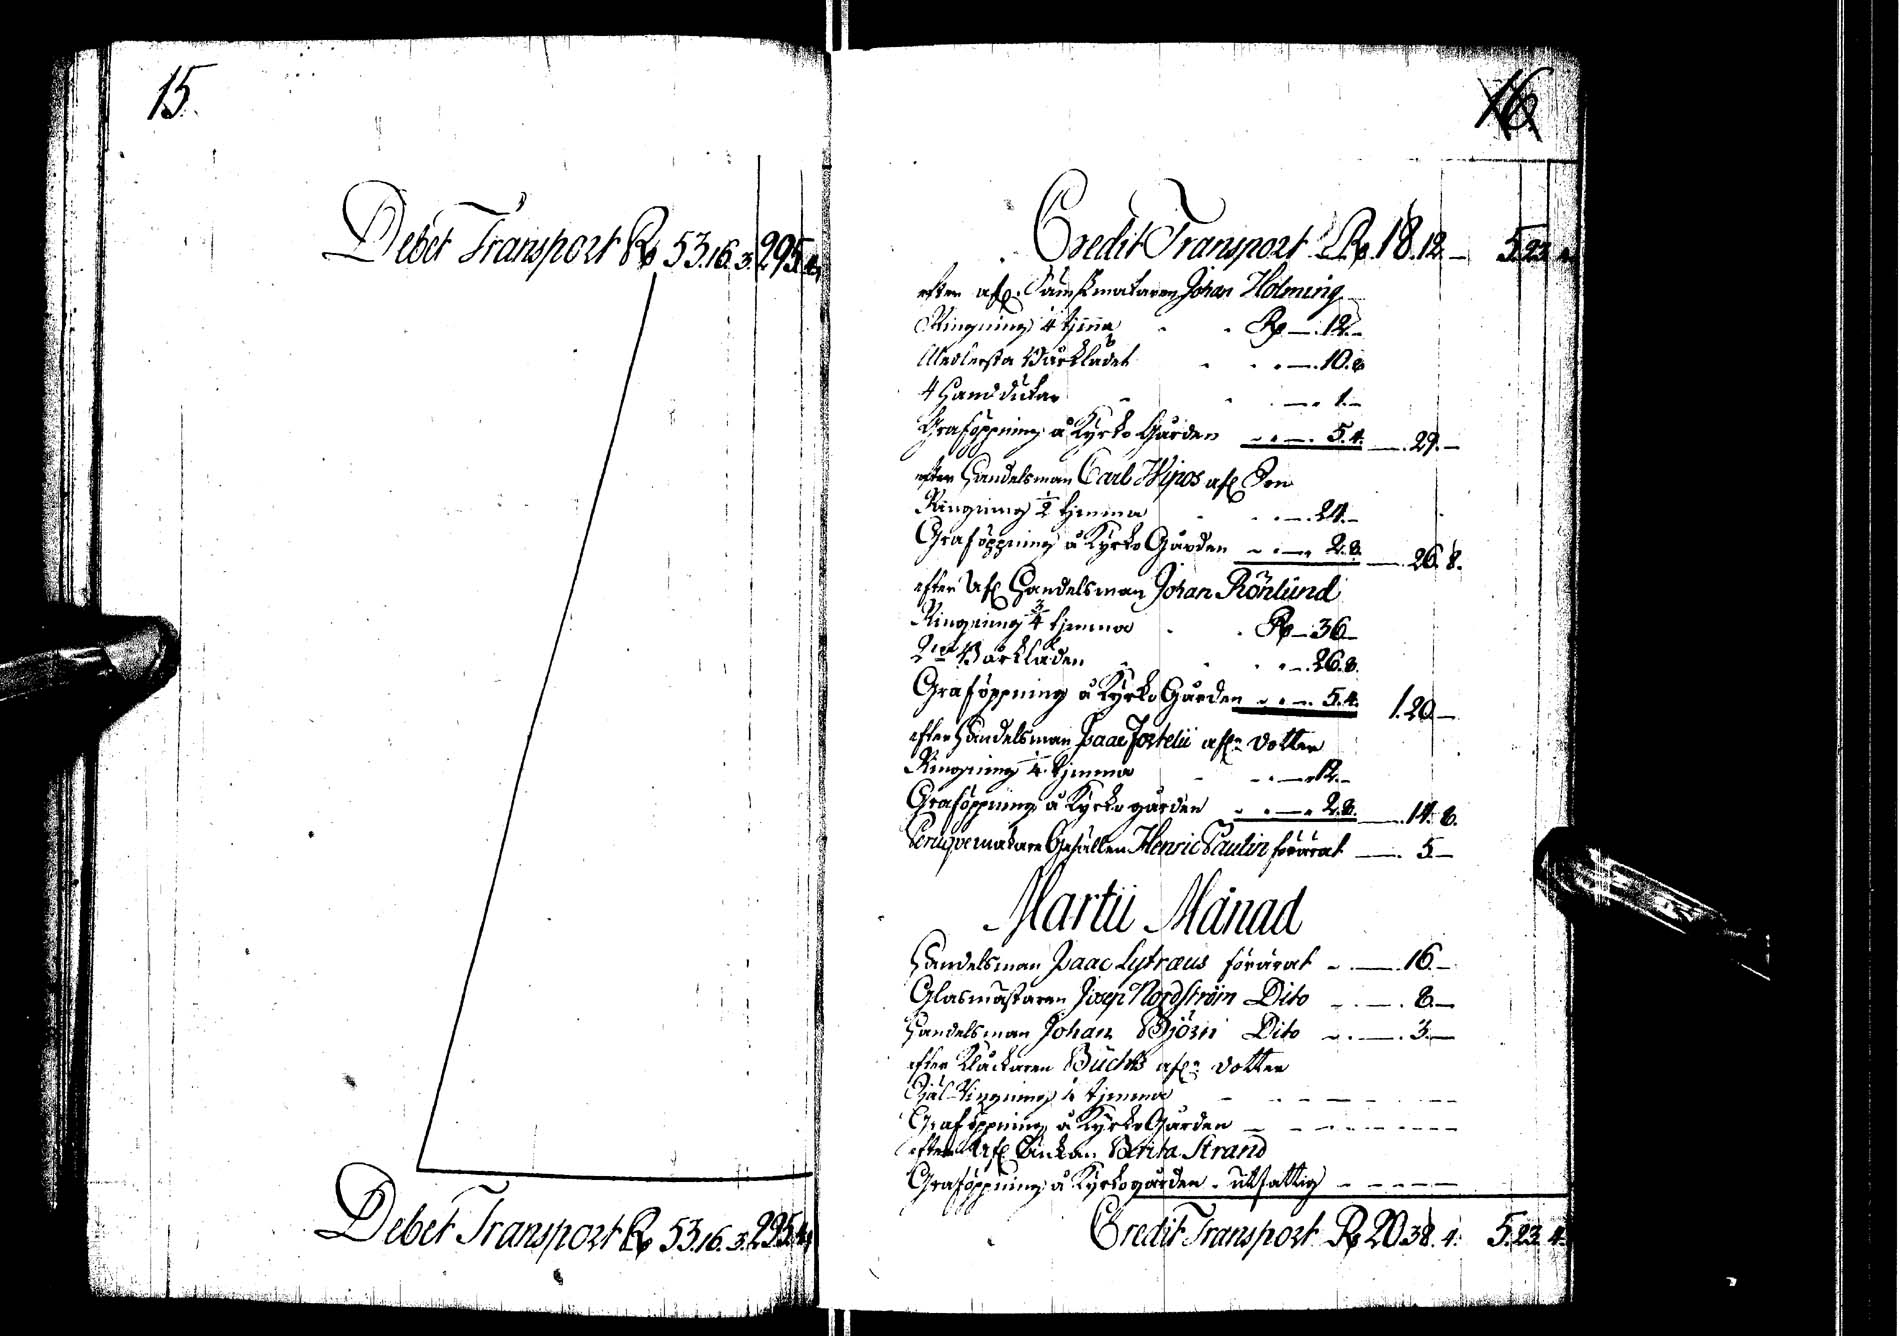 15.
Debet Transport Rd 53.16.3. 295.4.
Debet Transport Rd 53.16.3. 295.4.
16
Credit Transport Rd. 18.12.— 5.23.4.
efter afl. Sämskmakaren Johan Holming
Ringning ¼ tjma Rd —. 12.—
Medlersta Bårklädet —. 10.8
4 Handdukar — 1.—
Graföppning å Kyrko Gården —. 5.4. —. 29.—
efter Handelsman Carl Wipos afl. Son
Ringning ½ timma —. 24.—
Graföppning å Kyrko Gården — 2.8. —. 26.8.
efter Afl. Handelsman Johan Rönlund
Ringning ¾ timma Rd —. 36—
2ne Bårkläden —. 26.8.
Graföppning å Kyrko Gården —. 5.4. 1.20.—
efter Handelsman Isaac Fortelii afl:ne dotter
Ringning ¼ timma — 12.—
Graföppning å Kyrko gården — 2.8. —. 14.8.
Peruquemakare Gesällen Henric Paulin förärat —. 5—
Martii Månad
Handelsman Isaac Lytræus förärat —. 16.—
Glasmästaren Josep Nordström Dito —. 8.—
Handelsman Johan Björn Dito —. 3.—
efter Klåckaren Büchts afl:ne dotter
Själ-Ringning ¼ timma — — — — —
Graföppning å Kyrko Gården — — — — —
efter Afl. Änkan Brita Strand
Graföppning å Kyrkogården . utfattig — — — — —
Credit Transport Rd 20.38.4. 5.23.4.